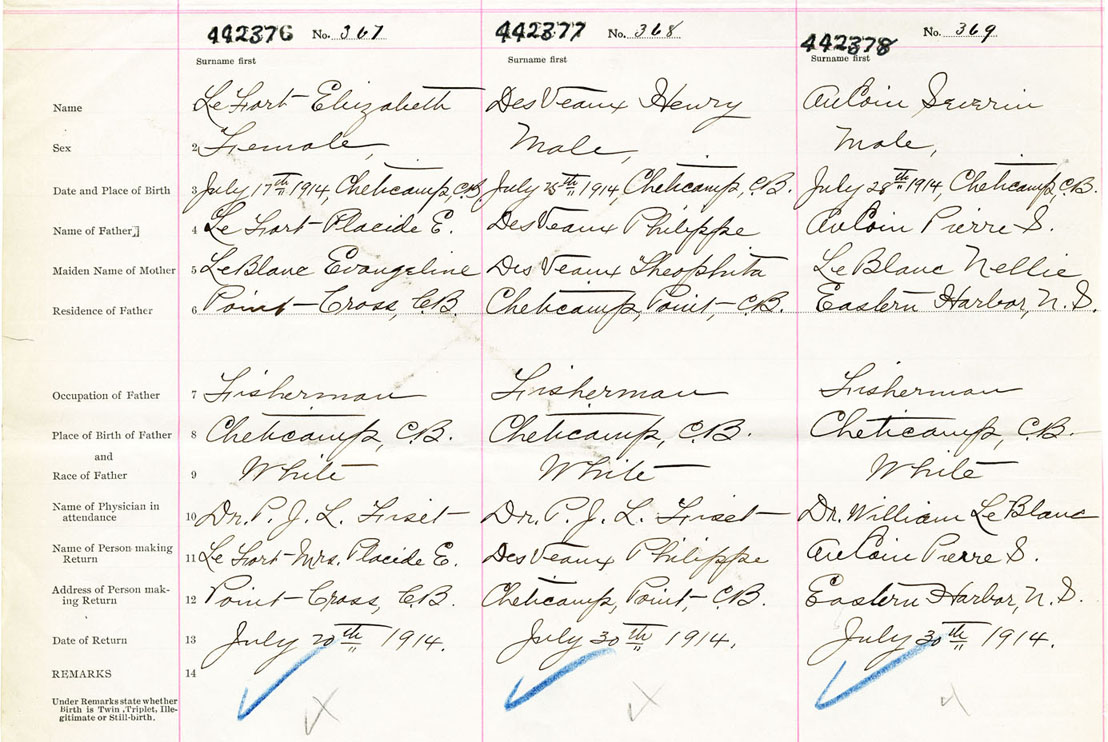 442376 No. 367 442377 No. 368 442378 No. 369
Surname first Surname first Surname first
Name Le Fort Elizabeth DesVeaux Henry AuCoin Severin
Sex 2 Female, Male, Male,
Date and Place of Birth 3 July 17th 1914, Cheticamp, C.B. July 25th 1914, Cheticamp, C.B. July 28th 1914, Cheticamp, C.B.
Name of Father 4 Le Fort Placide E. DesVeaux Philippe AuCoin Pierre S.
Maiden Name of Mother 5 LeBlanc Evangeline DesVeaux LeBlanc Nellie
Residence of Father 6 Point Cross, C.B. Cheticamp, Point, C.B. Eastern Harbor, N.S.
Occupation of Father 7 Fisherman Fisherman Fisherman
Place of Birth of Father 8 Cheticamp, C.B. Cheticamp, C.B. Cheticamp, C.B.
and
Race of Father 9 White White White
Name of Physician in
attendance 10 Dr. P. J. L. Fiset Dr. P. J. L. Fiset Dr. William LeBlanc
Name of Person making
Return 11 Le Fort Mrs. Placide E. DesVeaux Philippe AuCoin Pierre S.
Address of Person mak-
ing Return 12 Point Cross, C.B. Cheticamp, Point, C.B. Eastern Harbor, N.S.
Date of Return 13 July 20th 1914. July 30th 1914. July 30th 1914.
REMARKS 14
Under Remarks state whether
Birth is Twin, Triplet, Ille-
gitimate or Still-birth.